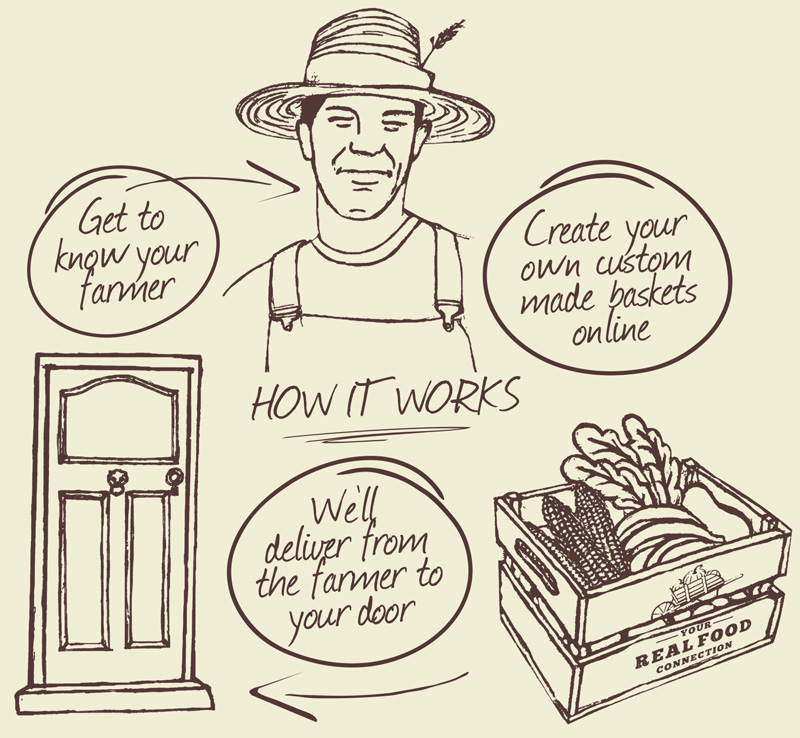 Get to
know your
farmer
Create your
own custom
made baskets
online
HOW IT WORKS
We'll
deliver from
the farmer to
your door
YOUR
REAL FOOD
CONNECTION